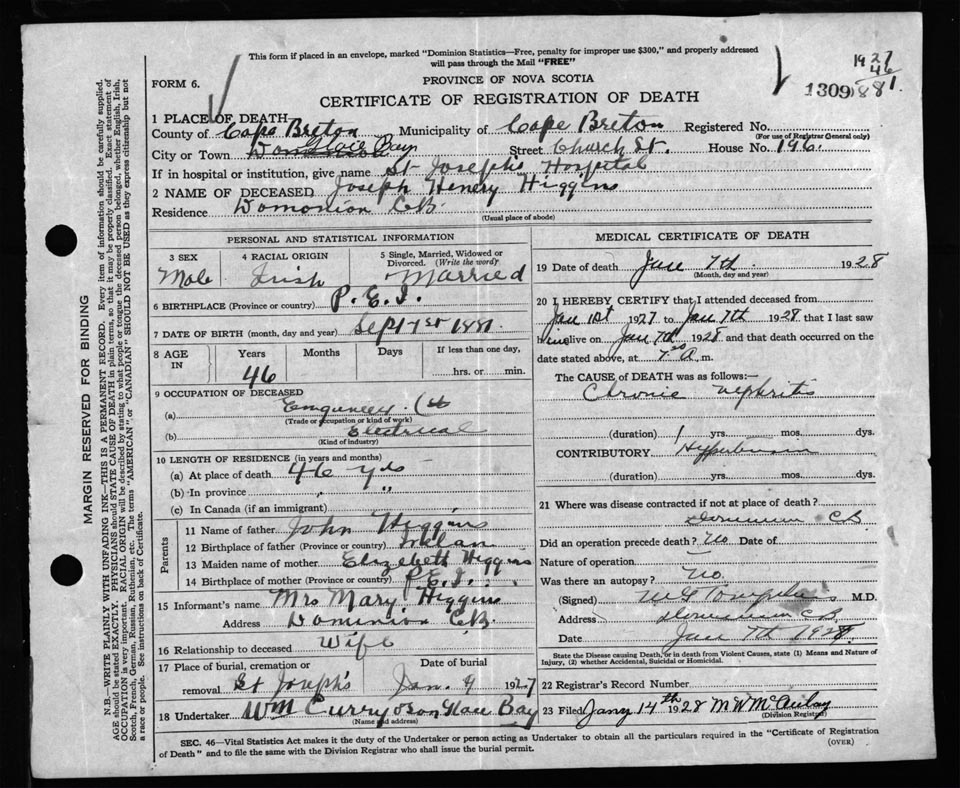 This form if placed in an envelope, marked "Dominion Statistics—Free, penalty for improper use $300," and properly addressed
will pass through the Mail "FREE"
FORM 6.
PROVINCE OF NOVA SCOTIA
1927
46
1881.
1309
CERTIFICATE OF REGISTRATION OF DEATH
1 PLACE OF DEATH
County of Cape Breton Municipality of Cape Breton Registered No.
(For use of Registrar General only)
City or Town Glace Bay Street Church St. House No. 196.
If in hospital or institution, give name St Joseph's Hospital
2 NAME OF DECEASED Joseph Henery Higgins
Residence Domonion C.B.
(Usual place of abode)
PERSONAL AND STATISTICAL INFORMATION
3 SEX 4 RACIAL ORIGIN 5 Single, Married, Widowed or
Divorced. (Write the word)
Male Irish Married
6 BIRTHPLACE (Province or country) P.E.I.
7 DATE OF BIRTH (month, day and year) Sept 1st 1881.
8 AGE IN Years Months Days If less than one day,
46 hrs. or min.
9 OCCUPATION OF DECEASED
(a)
(Trade or occupation or kind of work)
(b) Electrical
(Kind of industry)
10 LENGTH OF RESIDENCE (in years and months)
(a) At place of death 46 yds
(b) In province " "
(c) In Canada (if an immigrant)
Parents
11 Name of father John Higgins
12 Birthplace of father (Province or country) Irelan
13 Maiden name of mother Elizebeth Higgins
14 Birthplace of mother (Province or country) P.E.I.
15 Informant's name Mrs Mary Higgins
Address Dominion C.B.
16 Relationship to deceased Wife
17 Place of burial, cremation or Date of burial
removal St Joseph's Jan. 9 1927
18 Undertaker Wm Curry & Son Glace Bay
(Name and address)
MEDICAL CERTIFICATE OF DEATH
19 Date of death Jan 7th 1928
(Month, day and year)
20 I HEREBY CERTIFY that I attended deceased from
Jan 1st 1927 to Jan 7th 1928 that I last saw
him alive on Jan 7th 1928 and that death occurred on the
date stated above, at 7.30 A. m.
The CAUSE of DEATH was as follows:—
Chronic nephritis
(duration) 1 yrs. mos. dys.
CONTRIBUTORY
(duration) yrs. mos. dys.
21 Where was disease contracted if not at place of death?
Dominion C.B
Did an operation precede death? No Date of
Nature of operation
Was there an autopsy? No.
(Signed) M.D.
Address Dominion C.B.
Date Jan 7th 1928
State the Disease causing Death, or in death from Violent Causes, state (1) Means and Nature of
Injury, (2) whether Accidental, Suicidal or Homicidal.
22 Registrar's Record Number
23 Filed Jany 14th 1928 M W McAulay
(Division Registrar)
SEC. 46—Vital Statistics Act makes it the duty of the Undertaker or person acting as Undertaker to obtain all the particulars required in the "Certificate of Registration
of Death" and to file the same with the Division Registrar who shall issue the burial permit.
(OVER)
MARGIN RESERVED FOR BINDING
N.B.—WRITE PLAINLY WITH UNFADING INK—THIS IS A PERMANENT RECORD. Every item of information should be carefully supplied.
AGE should be stated EXACTLY. PHYSICIANS should STATE CAUSE OF DEATH in plain terms, so that it may be properly classified. Exact statement of
OCCUPATION is very important. RACIAL ORIGIN will be described by stating to what people or tongue the deceased person belonged, whether English, Irish,
Scotch, French, German, Russian, Ruthenian, etc. The terms "AMERICAN" or "CANADIAN" SHOULD NOT BE USED as they express citizenship but not
a race or people. See instructions on back of Certificate.